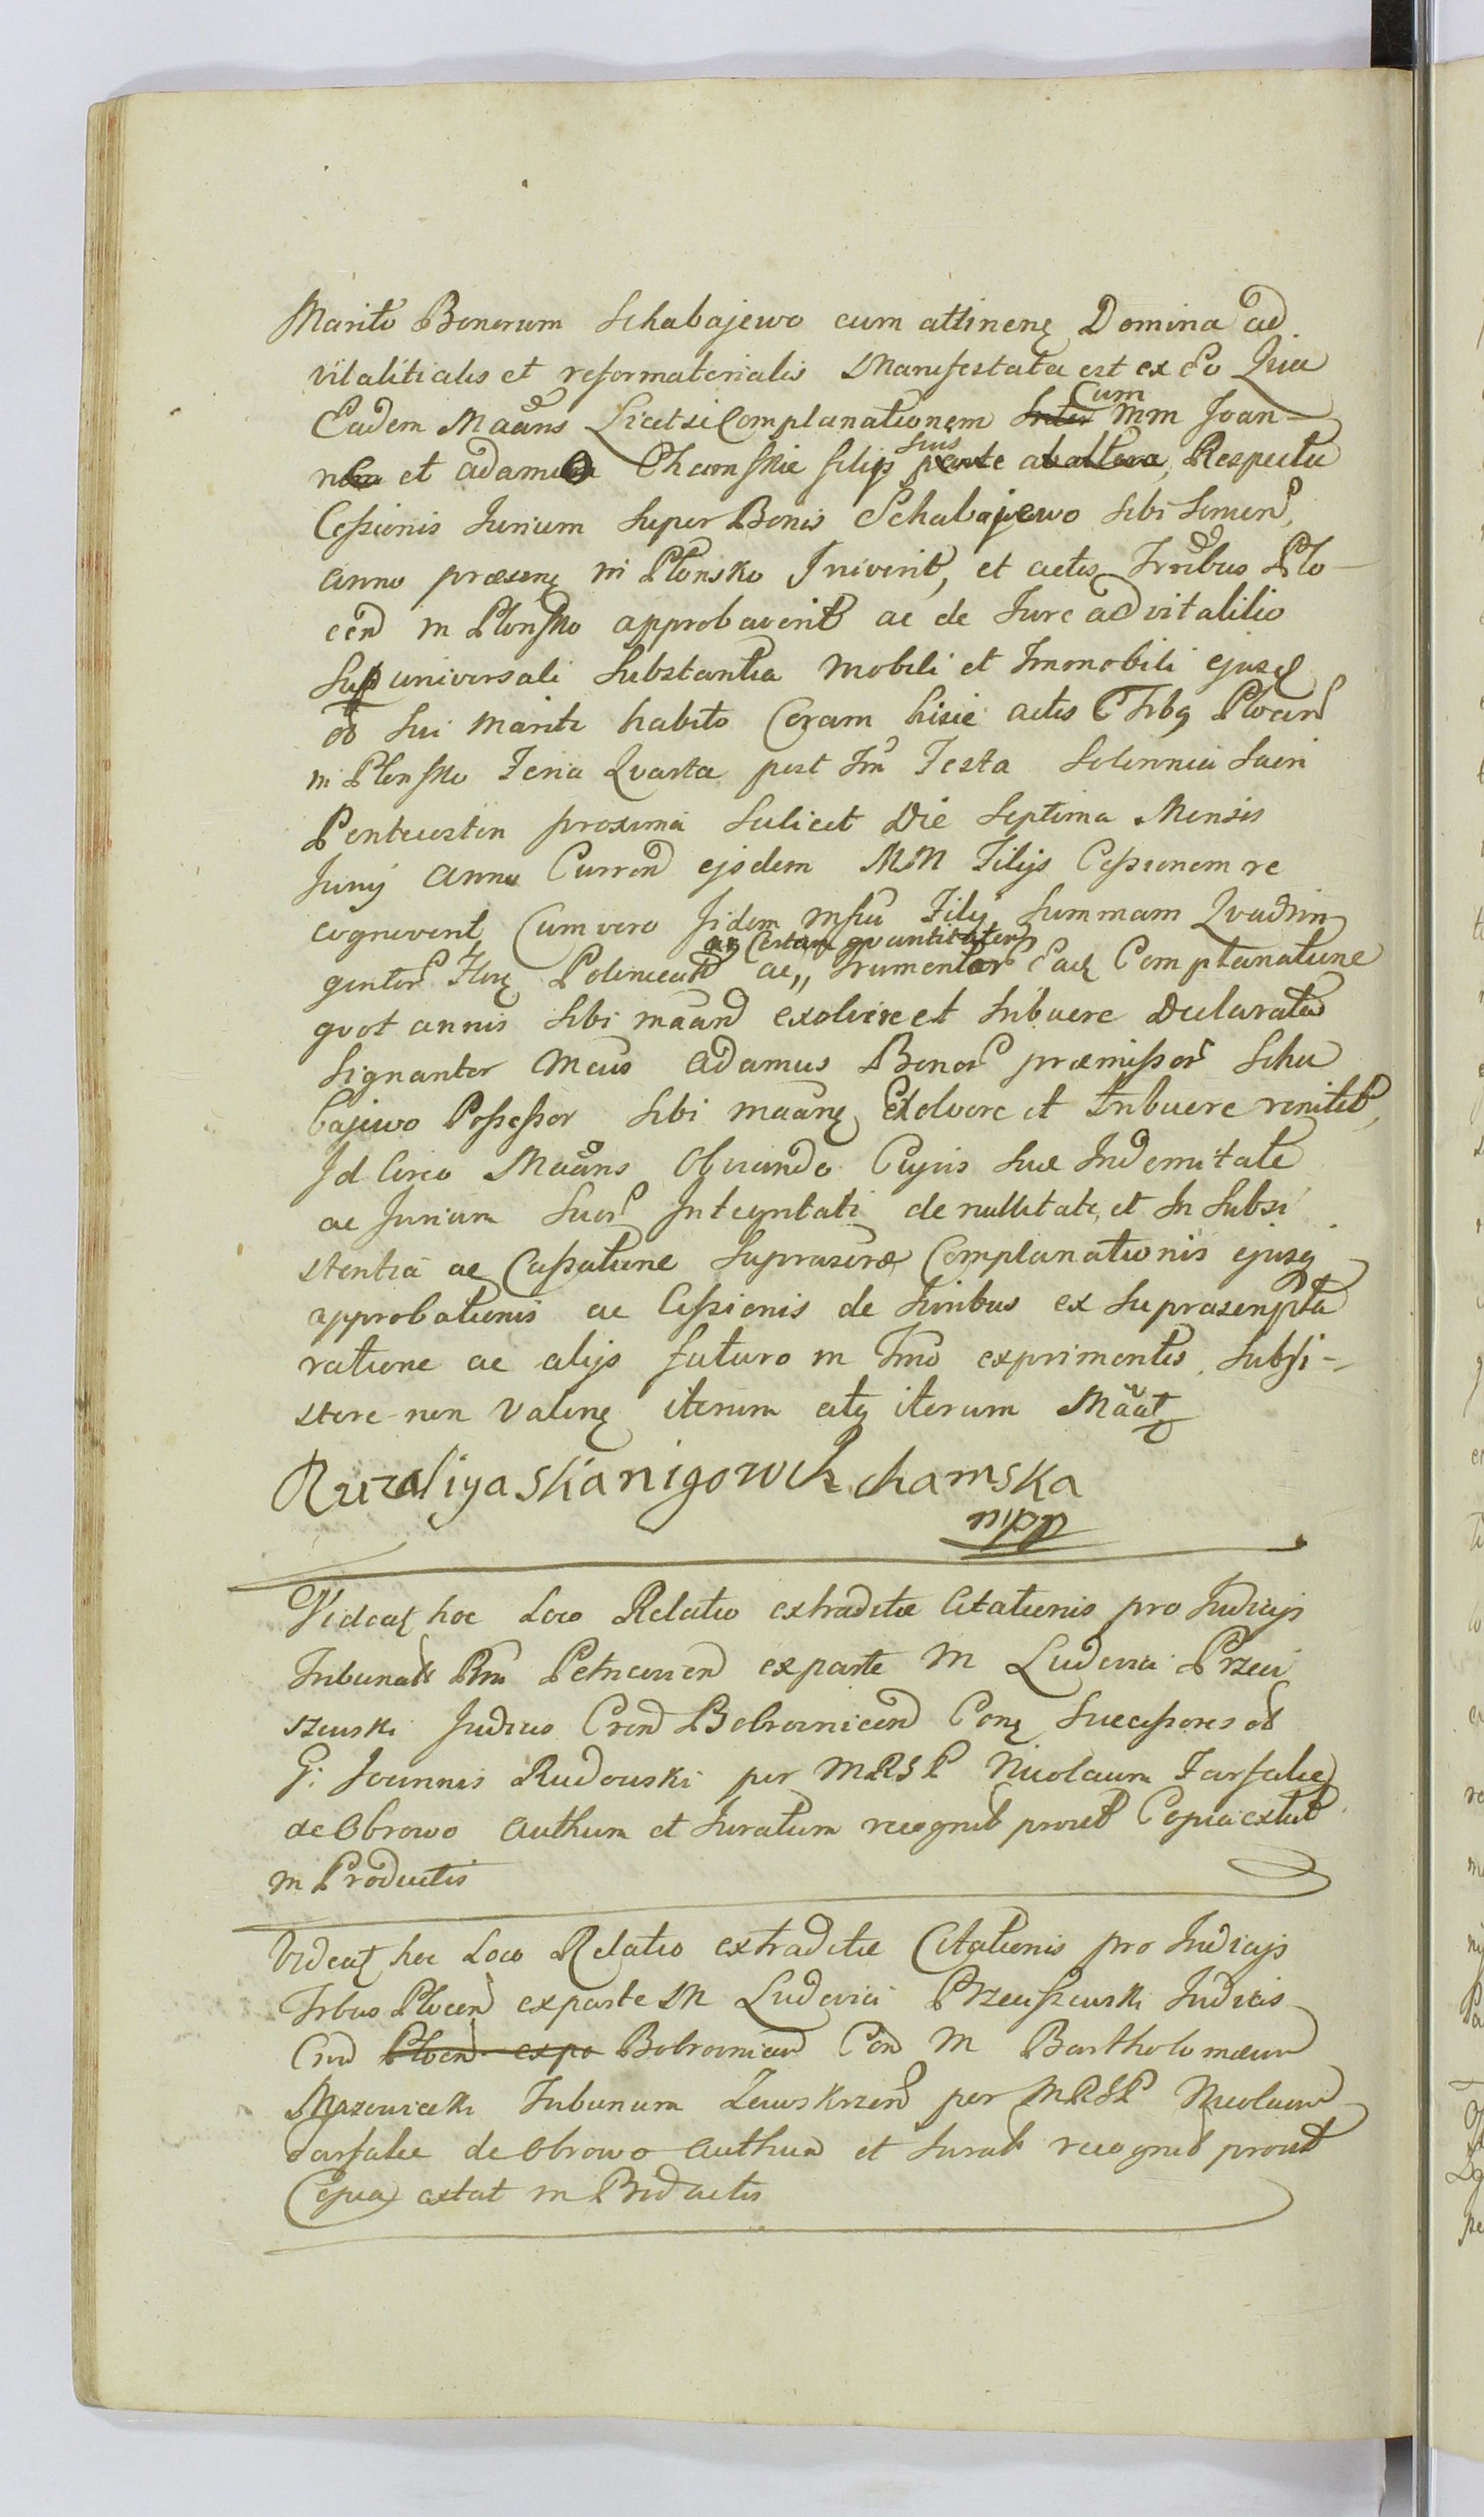 Marito Bonorum Schabajewo cum attinenę Domina ad
vitalitialis et reformaterialis Manifestata est ex Eo Quia
Eadem Maans Licet si Complanationem Inter Cum Mm Joan-
nem et Adamum Chamskie filijs suis parte ab altera, Respectu
Cessionis Jurium super Bonis Schabajewo sibi
anno præsenę in Płonsko Iniverit, et actis Plo-
cen in Plonsko approbaverit ac de Jure advitalitio
Sup universali Substantia Mobili et Immobili ejusd
od sui Mariti habito Coram hisce actis Plocen
in Plonsko Feria Quarta post Festa Solennia Sacri
Pentecosten proxima scilicet Die Septima Mensis
Junij Anno Curren ejsdem MM Filijs Cessionem re
cognoverit Cum vero Iidem Filij Summam Quadrin
gentor Flor Polonical ac certam quantitatem frumentor Eadę Complanatione
quot annis sibi maand exolvere et tribuere Declarata
Signanter Mcus Adamus Bonor præmissor Scha
bajewo Possessor sibi maanę Exolvere et tribuere renitet,
Id Circo Maans Obviando Cujus suæ Indemnitate
ac Jurium Suor Integritati de nullitate, et In Subsi
stentia ac Cassatione Suprascræ Complanationis ejusq
approbationis ac Cessionis de Juribus ex suprascripta
ratione ac alijs futuro in Tmo exprimentis Subsi-
stere non Valenę iterum atq iterum Maat
Ruzaliya skanigowch chamska
mpp
Videat hoc Loco Relatio extraditæ Citationis pro Judicijs
Tribunalis Petricovien ex parte M Ludovici Przeci
szewski Judicis Cren Bobrownicen Conę Successores od
G: Joannis Rudowski per MRSP Nicolaum Farfalię
de Obrowo Authum et Juratum recognit prout Copia extat
in Productis
Videat hoc Loco Relatio extraditæ Citationis pro Judicijs
Trbus Plocen ex parte M Ludovici Przeciszewski Judicis
Cren Plocen ex pa Bobrownicen Con M Bartholomæum
Mazowiecki Tribunum Zawskrzen per MRSP Nicolaum
Farfalię de Obrowo Authum et Jurat recognit prout
Copia extat in Productis